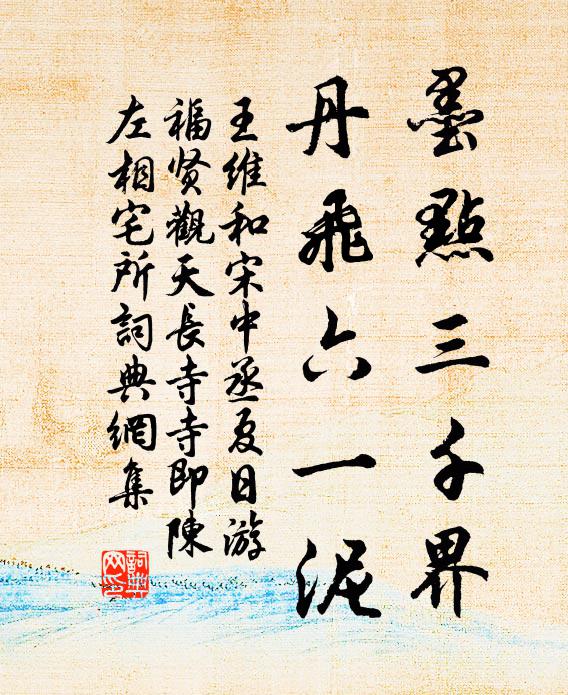 墨點三千界
丹飛六一泥
王維和宋中丞夏日游
福賢觀天長寺寺即陳
左相宅所詞典網集
詞典
网印